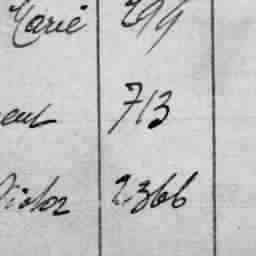 Marie 299
ent 713
Victor 2366